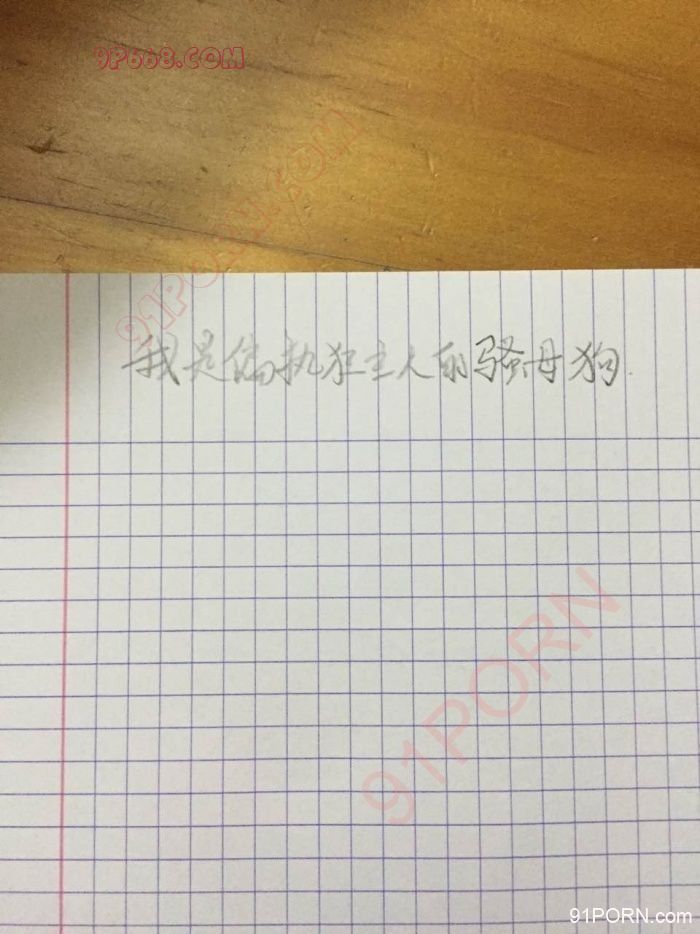 9P668.COM
91PORN.COM
我是偏执狂主人的骚母狗.
91PORN
91PORN.com